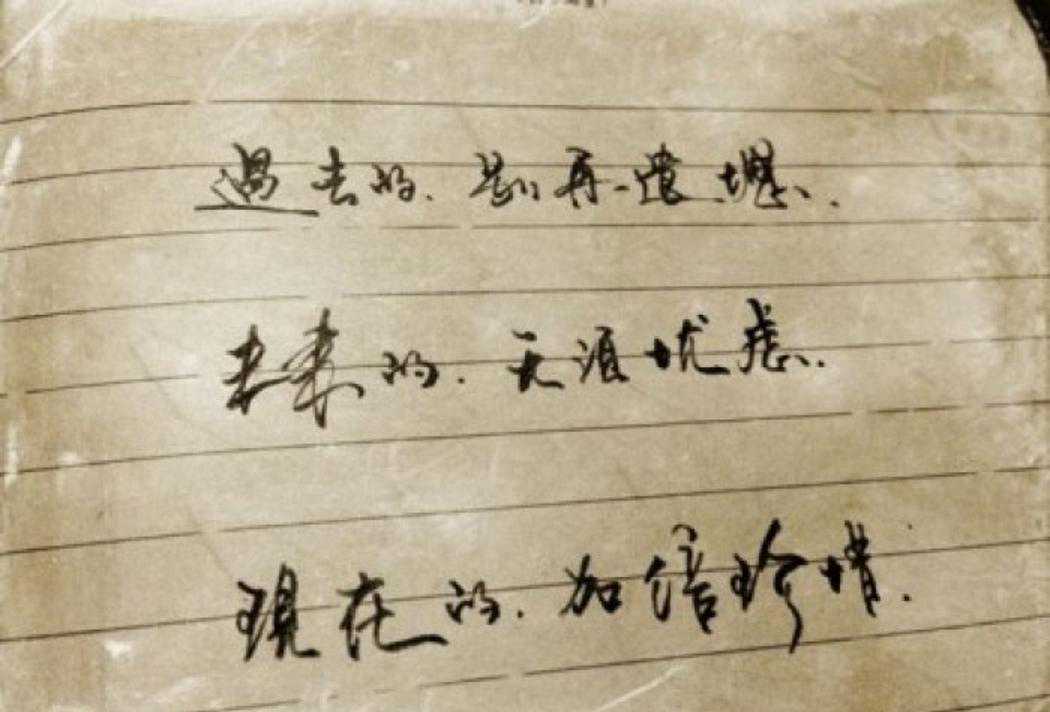 過去的.别再遗憾.
未来的.无须忧虑.
现在的.加倍珍惜.